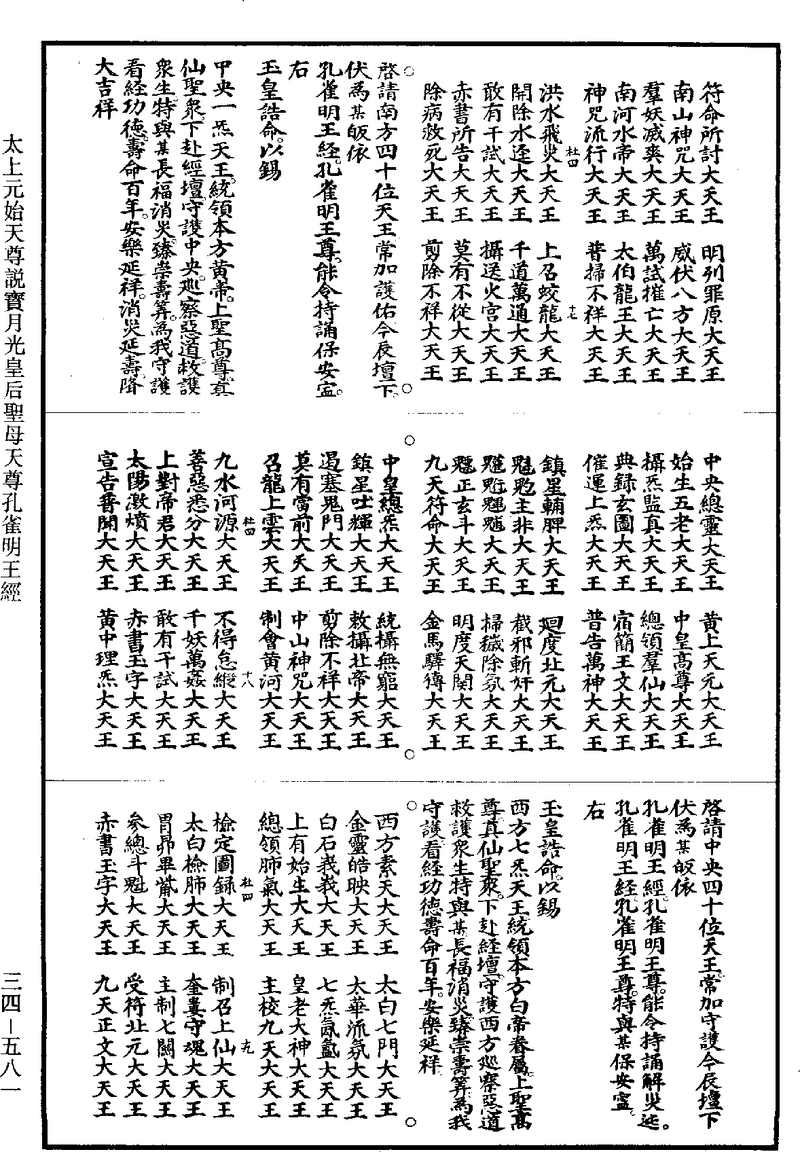 符命所討大天王　明列罪原大天王
南山神咒大天王　威伏八方大天王
羣妖滅爽大天王　萬試摧亡大天王
南河水帝大天王　太伯龍王大天王
神咒流行大天王　普掃不祥大天王
杜四　十七
洪水飛災大天王　上召蛟龍大天王
開除水逕大天王　千道萬通大天王
敢有干試大天王　攝送火宫大天王
赤書所告大天王　莫有不從大天王
除病救死大天王　剪除不祥大天王
啓請南方四十位天王常加護佑今辰壇下
伏爲某皈依
孔雀明王經孔雀明王尊能令持誦保安寍
右
玉皇誥命以錫
中央一炁天王統領本方黄帝上聖高尊真
仙聖衆下赴經壇守護中央巡察惡道救護
衆生特與某長福消災臻崇壽筭爲我守護
看經功德壽命百年安樂延祥消災延壽降
大吉祥
中央總靈大天王　黄上天元大天王
始生五老大天王　中皇高尊大天王
攝炁監真大天王　總領羣仙大天王
典録玄圖大天王　宿簡王文大天王
催運上炁大天王　普告萬神大天王
鎮星輔脾大天王　廻度北元大天王
魁魒主非大天王　截邪斬奸大天王
掃穢除氛大天王
魓正玄斗大天王　明度天関大天王
九天符命大天王　金馬驛傳大天王
中皇總炁大天王　統攝無窮大天王
鎮星吐輝大天王　敕攝北帝大天王
遏塞鬼門大天王　剪除不祥大天王
莫有當前大天王　中山神咒大天王
召龍上雲大天王　制會黄河大天王
杜四　十八
九水河源大天王　不得怠縱大天王
善惡悉分大天王　千妖萬姦大天王
上對帝君大天王　敢有干試大天王
太陽激濆大天王　赤書玉字大天王
宣告普聞大天王　黄中理炁大天王
啓請中央四十位天王常加守護今辰壇下
伏爲某皈依
孔雀明王經孔雀明王尊能令持誦解災迍
孔雀明王經孔雀明王尊特與某保安寍
右
玉皇誥命以錫
西方七炁天王統領本方白帝眷屬上聖高
尊真仙聖衆下赴經壇守護西方巡察惡道
救護衆生特與某長福消災臻崇壽筭爲我
守護看經功德壽命百年安樂延祥
西方素天大天王　太白七門大天王
金靈皓映大天王　太華流氛大天王
白石峩峩大天王　七炁氤氲大天王
上有始生大天王　皇老大神大天王
總領肺氣大天王　主校九天大天王
杜四　十九
檢定圖録大天王　制召上仙大天王
太白檢肺大天王　奎婁守魂大天王
胃昴畢觜大天王　主制七關大天王
參總斗魁大天王　受符北元大天王
赤書玉字大天王　九天正文大天王
太上元始天尊説寶月光皇后聖母天尊孔雀明王經
三四－五八一